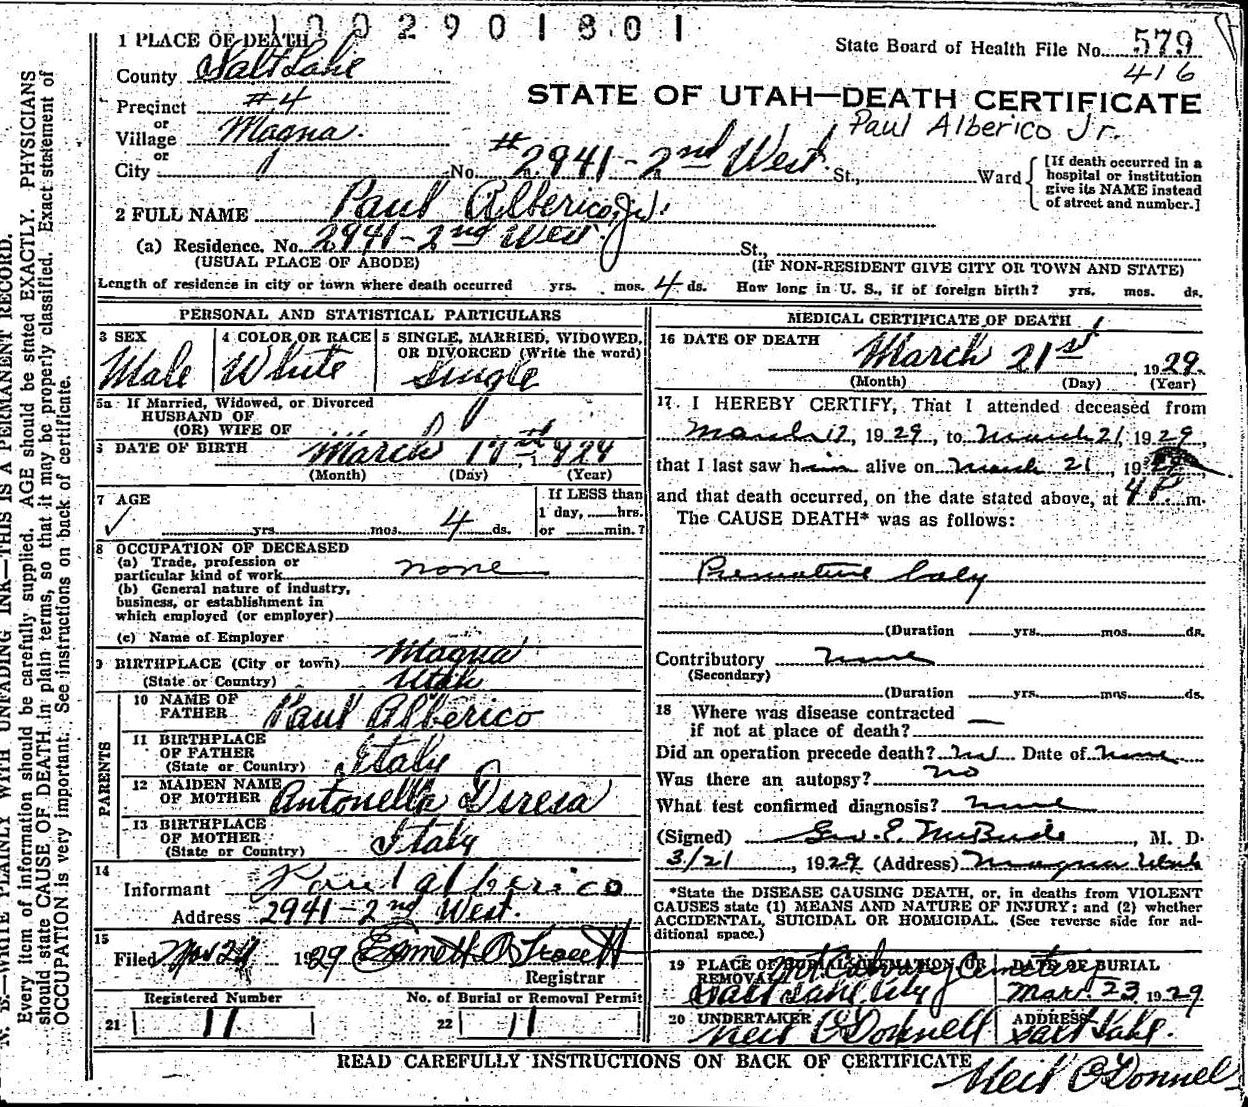 1002901801
1 PLACE OF DEATH
State Board of Health File No. 579
County Salt Lake
416
Precinct #4
STATE OF UTAH—DEATH CERTIFICATE
or
Village Magna.
Paul Alberico Jr.
or
City No. #2941-2nd West. St., Ward
[If death occurred in a hospital or institution give its NAME instead of street and number.]
2 FULL NAME Paul Alberico, Jr.
(a) Residence. No. 2941-2nd West. St.,
(USUAL PLACE OF ABODE) (IF NON-RESIDENT GIVE CITY OR TOWN AND STATE)
Length of residence in city or town where death occurred yrs. mos. 4 ds. How long in U. S., if of foreign birth? yrs. mos. ds.
PERSONAL AND STATISTICAL PARTICULARS
3 SEX Male
4 COLOR OR RACE White
5 SINGLE, MARRIED, WIDOWED, OR DIVORCED (Write the word) Single
5a If Married, Widowed, or Divorced
HUSBAND OF
(OR) WIFE OF
6 DATE OF BIRTH March 17th, 1929
(Month) (Day) (Year)
7 AGE
yrs. mos. 4 ds.
If LESS than
1 day, hrs.
or min.?
8 OCCUPATION OF DECEASED
(a) Trade, profession or
particular kind of work none
(b) General nature of industry,
business, or establishment in
which employed (or employer)
(c) Name of Employer
9 BIRTHPLACE (City or town) Magna
(State or Country) Utah
PARENTS
10 NAME OF FATHER Paul Alberico
11 BIRTHPLACE OF FATHER (State or Country) Italy
12 MAIDEN NAME OF MOTHER Antonella Deresa
13 BIRTHPLACE OF MOTHER (State or Country) Italy
14
Informant Paul alberico
Address 2941-2nd West.
15
Filed Mar 24 1929 Emmett
Registrar
Registered Number
21 11
No. of Burial or Removal Permit
22 11
MEDICAL CERTIFICATE OF DEATH
16 DATE OF DEATH March 21st, 1929.
(Month) (Day) (Year)
17 I HEREBY CERTIFY, That I attended deceased from
March 17, 1929, to March 21 1929,
that I last saw him alive on March 21, 1929
and that death occurred, on the date stated above, at 4 P. m.
The CAUSE DEATH* was as follows:
Premature baby
(Duration yrs. mos. ds.
Contributory none
(Secondary)
(Duration yrs. mos. ds.
18 Where was disease contracted
if not at place of death?
Did an operation precede death? no Date of none
Was there an autopsy? no
What test confirmed diagnosis? none
(Signed) Geo. E. McBride, M. D.
3/21, 1929 (Address) Magna Utah
*State the DISEASE CAUSING DEATH, or, in deaths from VIOLENT
CAUSES state (1) MEANS AND NATURE OF INJURY; and (2) whether
ACCIDENTAL, SUICIDAL OR HOMICIDAL. (See reverse side for ad-
ditional space.)
19 PLACE OF BURIAL, CREMATION, OR REMOVAL Mt Calvary Cemetery
Salt Lake City
DATE OF BURIAL
Mar. 23 1929
20 UNDERTAKER Neil O'Donnell
ADDRESS Salt Lake.
READ CAREFULLY INSTRUCTIONS ON BACK OF CERTIFICATE
Neil O'Donnell
N. B.—WRITE PLAINLY WITH UNFADING INK—THIS IS A PERMANENT RECORD.
Every item of information should be carefully supplied. AGE should be stated EXACTLY. PHYSICIANS
should state CAUSE OF DEATH in plain terms, so that it may be properly classified. Exact statement of
OCCUPATION is very important. See instructions on back of certificate.